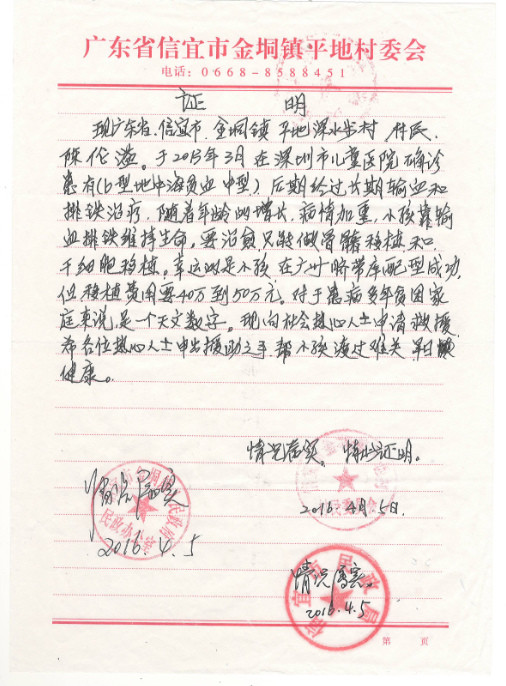 广东省信宜市金垌镇平地村委会
电话：0668-8588451
证 明
现广东省、信宜市、金垌镇平地深水步村、村民、
陈伦溢。于2013年3月在深圳市儿童医院确诊
患有（b型地中海贫血中型）后期经过长期输血和
排铁治疗，随着年龄的增长，病情加重，小孩靠输
血排铁维持生命，要治愈只能做骨髓移植和
干细胞移植。幸运的是小孩在广州脐带库配型成功，
但移植费用要40万到50万元。对于患病多年贫困家
庭来说，是一个天文数字。现向社会热心人士申请救援，
希各位热心人士申出援助之手，帮小孩渡过难关，早日
健康。
情况属实，特此证明。
2016.4月5日.
情况属实
2016.4.5
情况属实。
2016.4.5
第 页